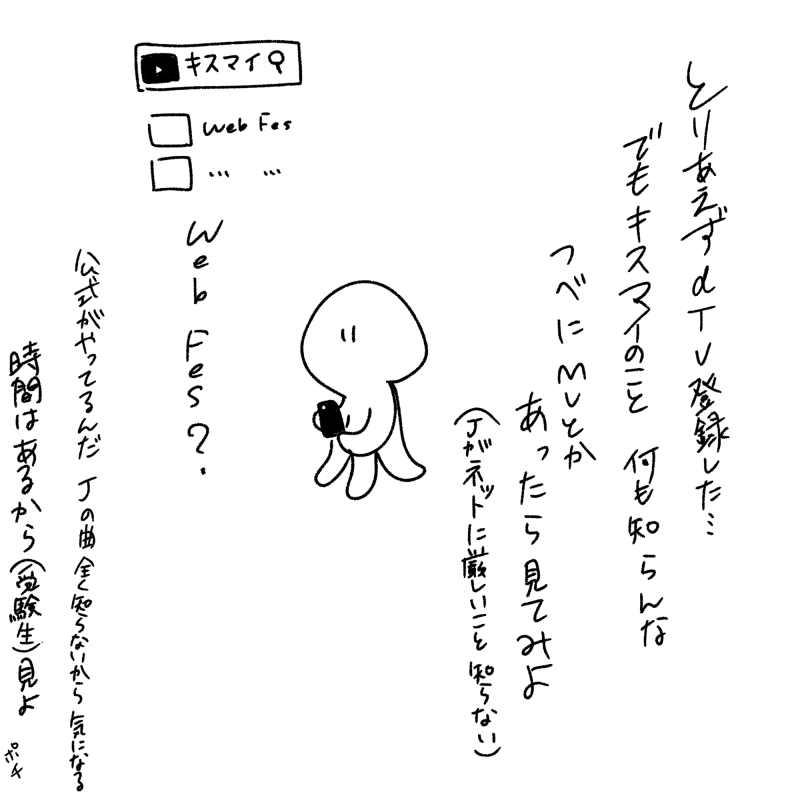 とりあえずdTV登録した…
でもキスマイのこと 何も知らんな
つべにMVとか
あったら見てみよ
(Jがネットに厳しいこと 知らない)
キスマイ
Web Fes
… …
Web Fes?
公式がやってるんだ Jの曲 全く知らないから 気になる
時間はあるから(受験生)見よ
ポチ